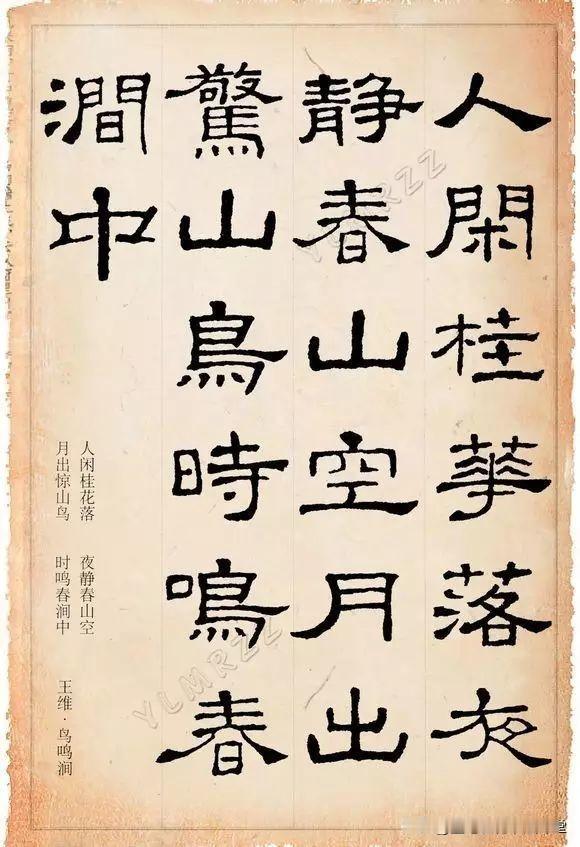 人閑桂華落夜
静春山空月出
驚山鳥時鳴春
澗中
人闲桂花落 夜静春山空
月出惊山鸟 时鸣春涧中
王维·鸟鸣涧
YLMRZZ
YLMRZZ